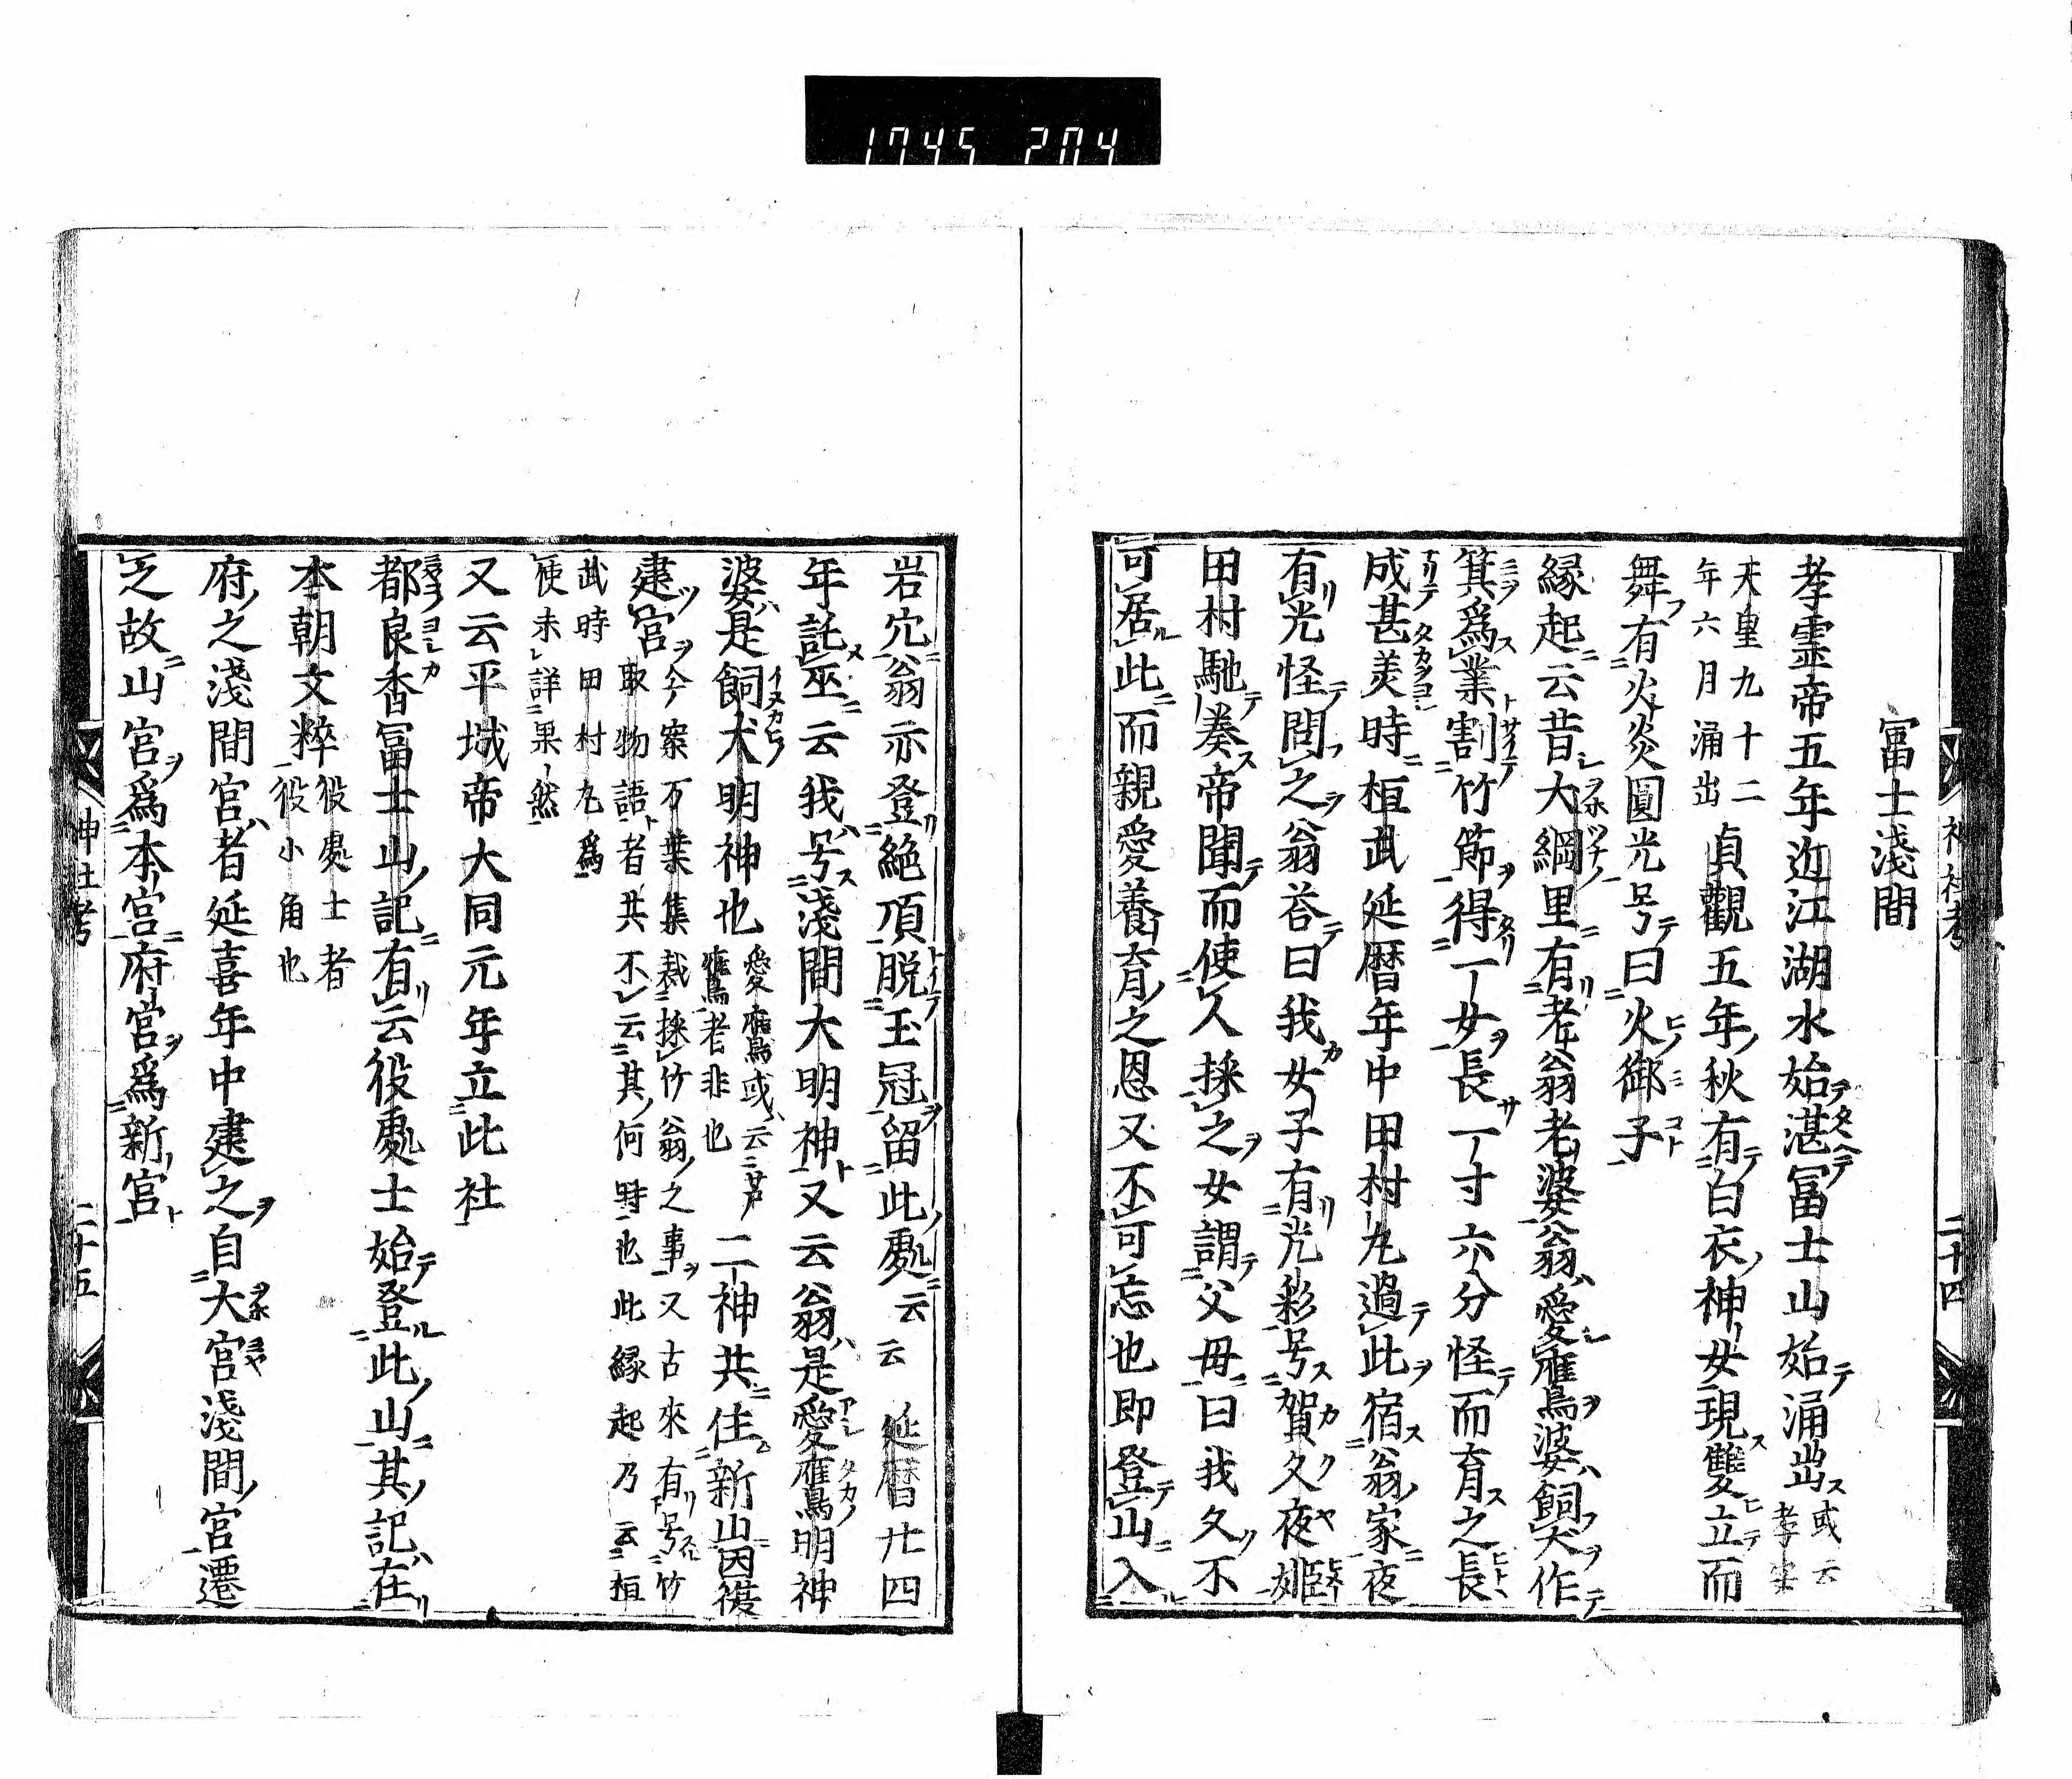 1745 204
神社考
二十四
冨士淺間
孝霊帝五年近江湖水始湛冨士山始涌出或云孝安
天皇九十二年六月涌出貞觀五年秋有白衣神女現雙立而
舞有火炎圓光号曰火御子
縁起云昔大綱里有老翁老婆翁愛鷹婆飼犬作
箕爲業割竹節得一女長一寸六分怪而育之長
成甚美時桓武延暦年中田村丸過此宿翁家夜
有光怪問之翁荅曰我女子有光彩号賀久夜姬
田村馳奏帝聞而使人採之女謂父毋曰我久不
可居此而親愛養育之恩又不可忘也即登山入
岩穴翁亦登絶頂脱玉冠留此處云云延暦廿四
年託巫云我号淺間大明神又云翁是愛鷹明神
婆是飼犬明神也愛鷹或云芦鷹者非也二神共住新山因復
建宮今案万葉集載採竹翁之事又古來有号竹
取物語者其不云其何時也此縁起乃云桓
武時田村丸爲
使未詳果然
又云平城帝大同元年立此社
都良香冨士山記有云役處士始登此山其記在
本朝文粹役處士者役小角也
府之淺間宮者延喜年中建之自大宮淺間宮遷
之故山宮爲本宮府宮爲新宮
神社考
二十五